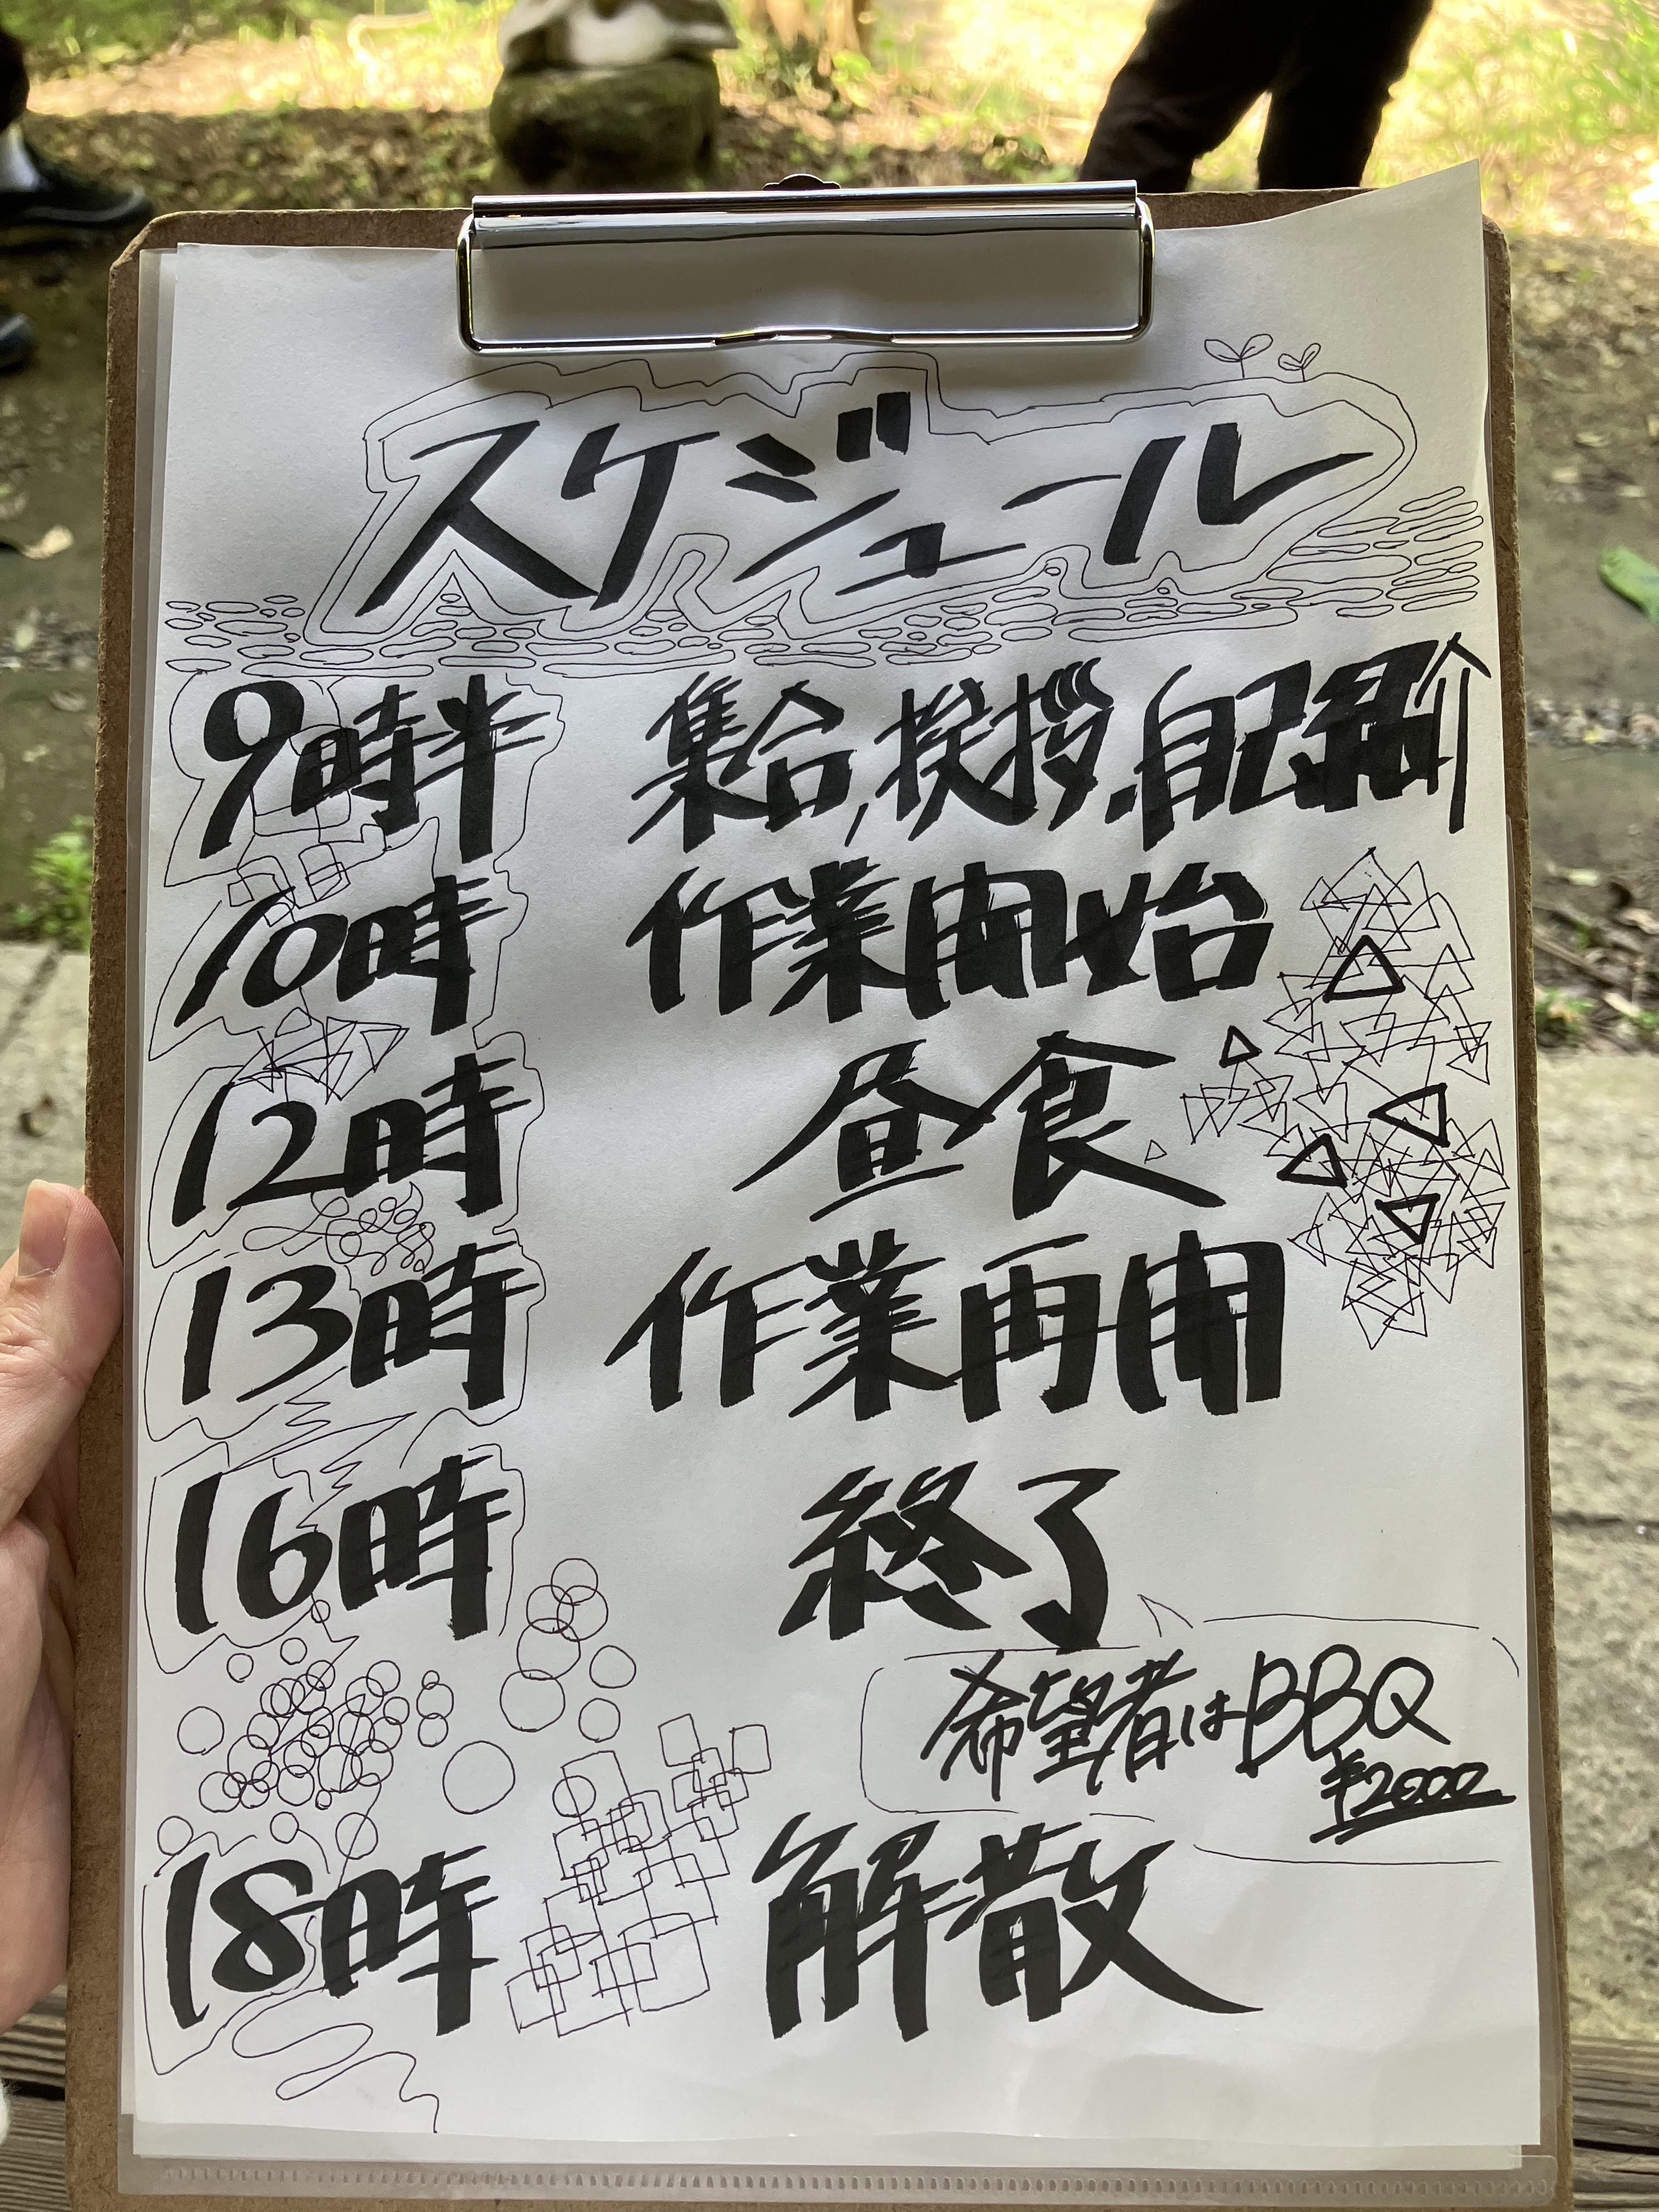 スケジュール
9時半 集合,挨拶.自己紹介
10時 作業開始
12時 昼食
13時 作業再開
16時 終了
希望者はBBQ
¥2000
18時 解散